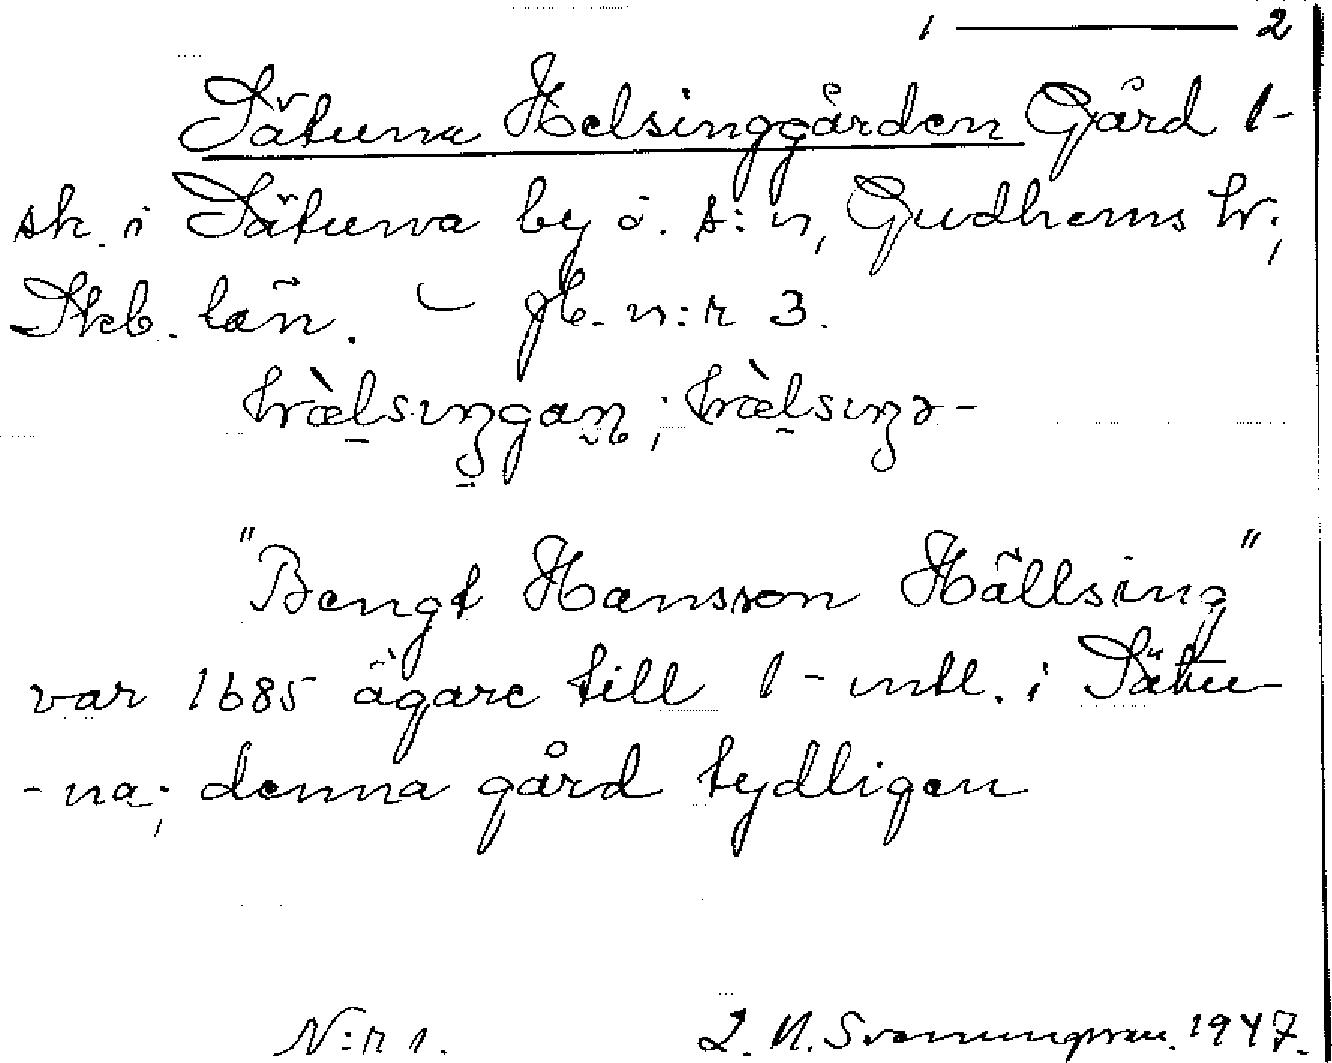 1 — 2
Sätuna Helsinggården Gård 1-
sk. i Sätuna by o. s:n, Gudhems hr;
Skb. län. – jb. n:r 3.
hæ̀lsıŋgan; hæ̀lsıŋə-
"Bengt Hansson Hällsing"
var 1685 ägare till 1 - mtl. i Sätu-
-na; denna gård tydligen
N:r 1. 1947.